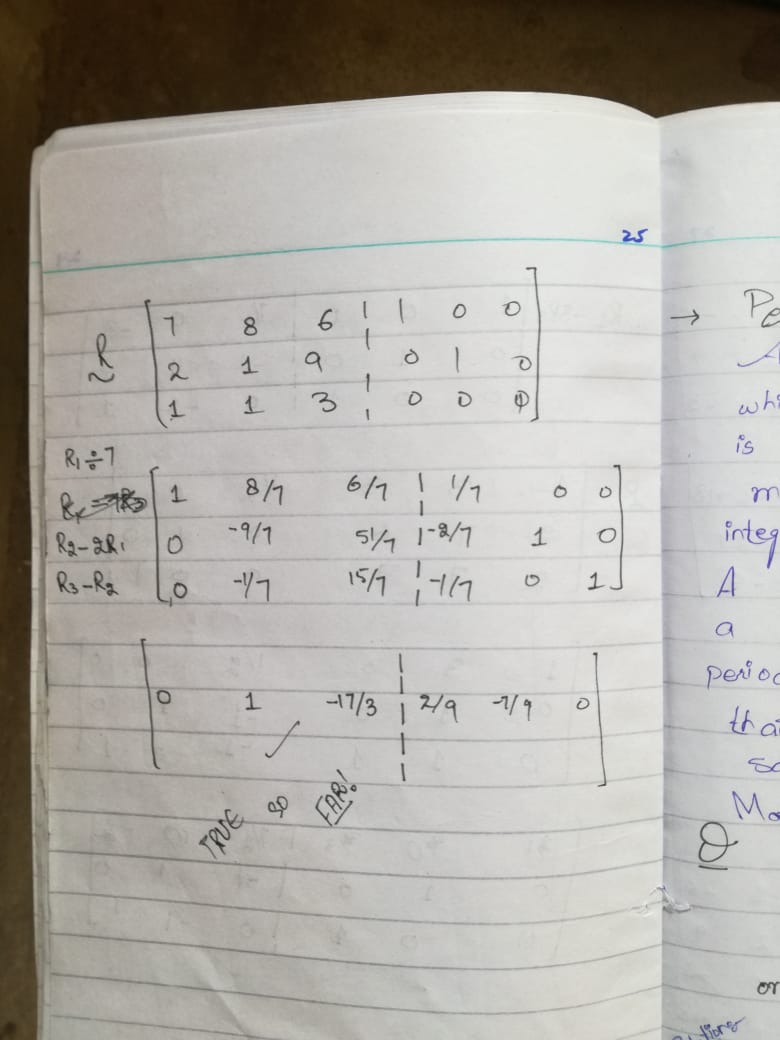 25
~R [ 7 8 6 | 1 0 0 ]
2 1 9 | 0 1 0
1 1 3 | 0 0 0
R₁÷7
[ 1 8/7 6/7 | 1/7 0 0 ]
R₂-2R₁ 0 -9/7 51/7 | -2/7 1 0
R₃-R₂ 0 -1/7 15/7 | -1/7 0 1
[ 0 1 -17/3 | 2/9 -7/9 0 ]
✓
TRUE SO FAR!
→ Pe
A
whi
is
m
integ
A
a
period
tha
so
Ma
Q
or